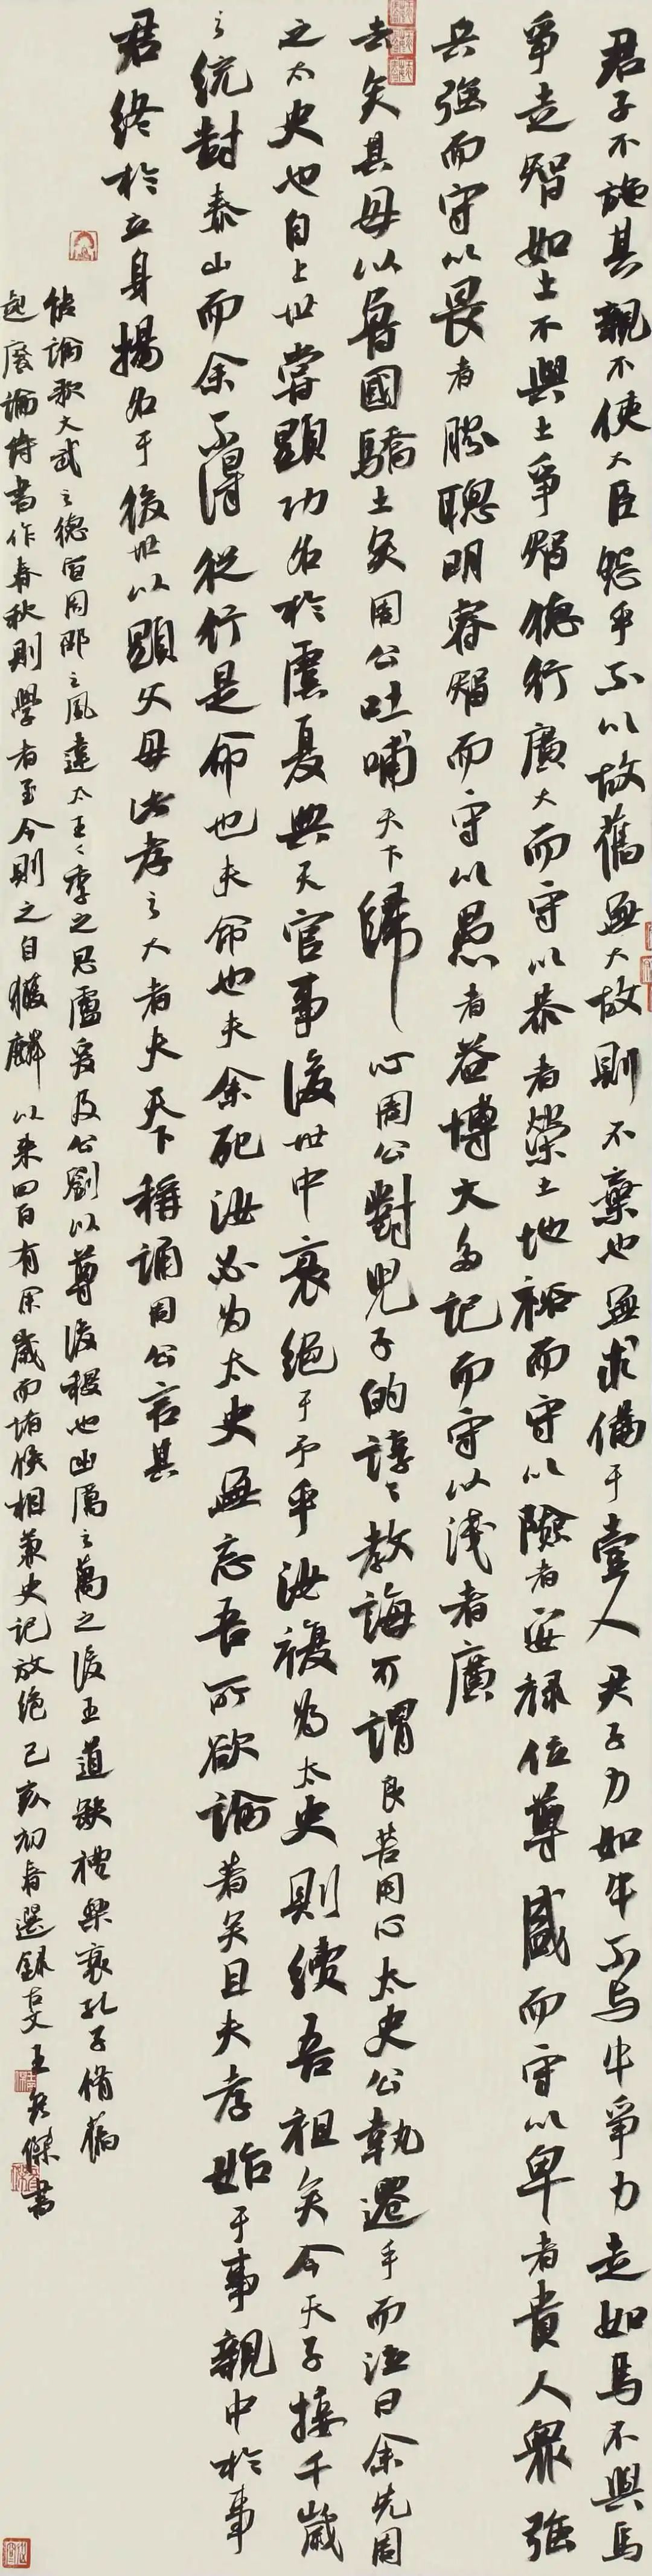 君子不施其親不使大臣怨乎不以故舊無大故則不棄也無求備于壹人君子力如牛不与牛爭力走如馬不與馬
爭走智如士不與士爭智德行廣大而守以恭者榮土地裕而守以險者安祿位尊盛而守以卑者貴人衆强
兵强而守以畏者勝聰明睿智而守以愚者益博大多記而守以淺者廣
去矣其毋以魯國驕士矣周公吐哺天下歸心周公對兒子的諄諄教誨可謂良苦用心太史公執遷手而泣曰余先周
之太史也自上世嘗顯功名於虞夏典天官事後世中衰絕于予乎汝復為太史則續吾祖矣今天子接千歲
之統封泰山而余不得從行是命也夫命也夫余死汝必為太史無忘吾所欲論著矣且夫孝始于事親中於事
君終於立身揚名于後世以顯父母此孝之大者夫天下稱誦周公言其
能論歌文武之德宣周邵之風達太王王季之思慮爰及公劉以尊後稷也幽厲之萬之後王道缺禮樂衰孔子脩舊
起廢論詩書作春秋則學者至今則之自獲麟以来四百有餘歲而諸侯相兼史記放絕己亥初春選錄古文王傑書